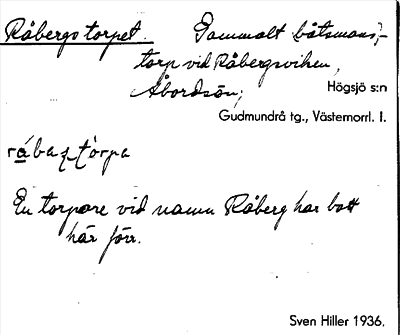 Råbergs torpet. Gammalt båtsmans-
torp vid Råbergsviken,
Åbordsön; Högsjö s:n
Gudmundrå tg., Västernorrl. l.
råbaʒ tòrpa
En torpare vid namn Råberg har bott
här förr.
Sven Hiller 1936.